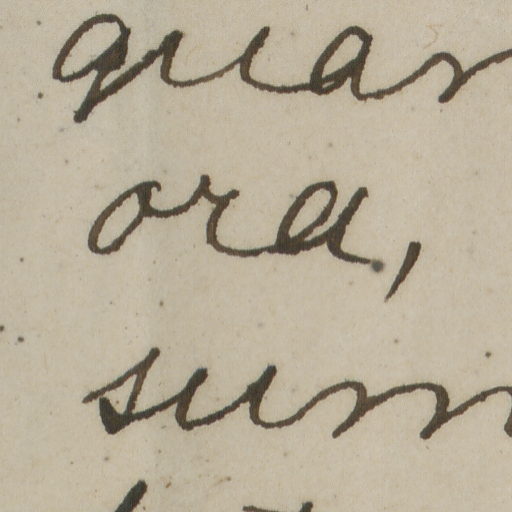 quan
ora,
sum